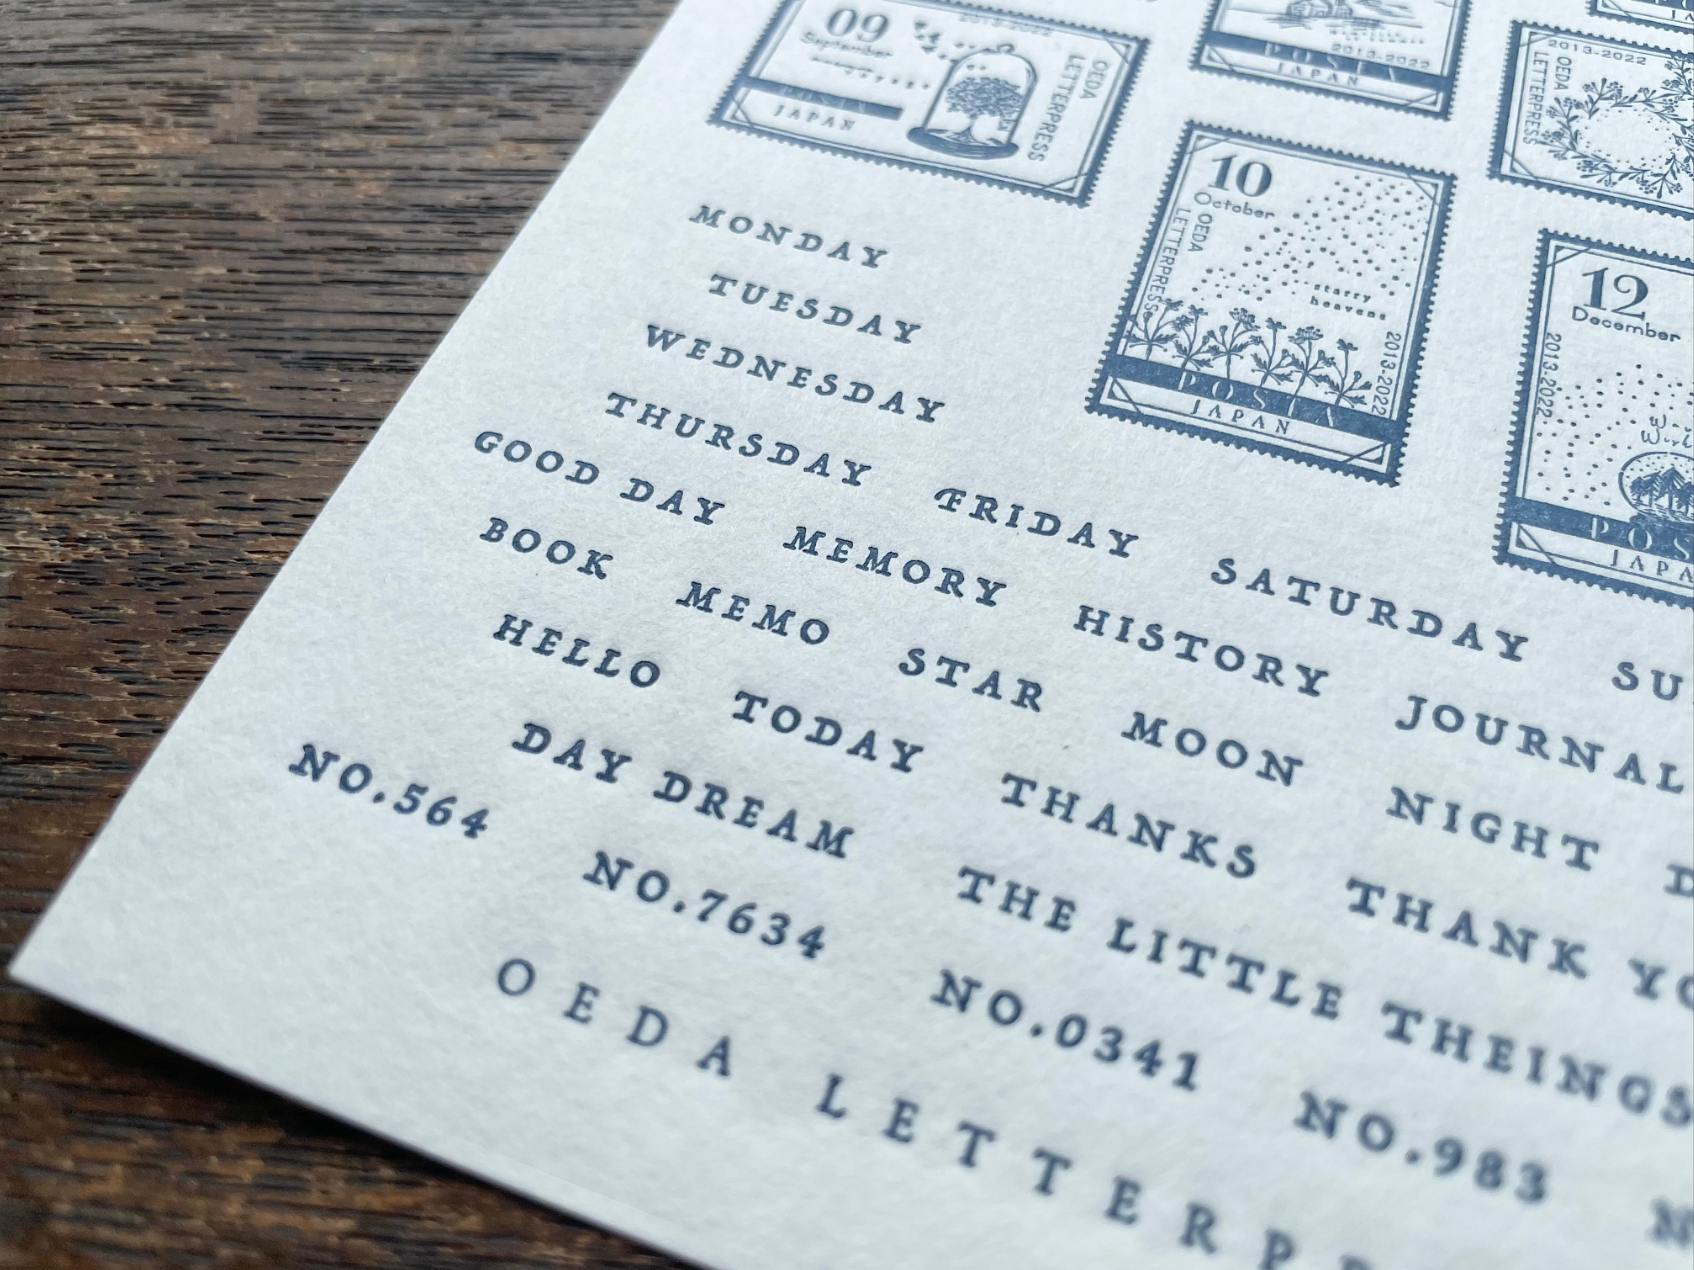 09
September
2013-2022
OEDA
LETTERPRESS
JAPAN
2013-2022
JAPAN
2013-2022
OEDA
LETTERPRESS
10
October
OEDA
LETTERPRESS
starry
heavens
2013-2022
POSTA
JAPAN
12
December
2013-2022
MONDAY
TUESDAY
WEDNESDAY
THURSDAY FRIDAY SATURDAY SU
GOOD DAY MEMORY HISTORY JOURNAL
BOOK MEMO STAR MOON NIGHT D
HELLO TODAY THANKS THANK YO
DAY DREAM THE LITTLE THEINGS
NO.564 NO.7634 NO.0341 NO.983 N
OEDA LETTERP